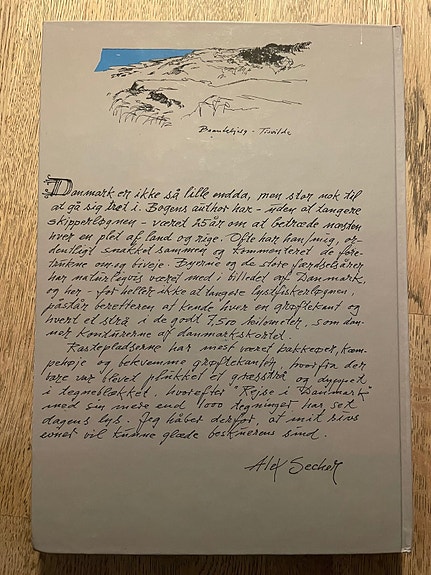 Brantebjerg - Tisvilde
Danmark er ikke så lille endda, men stor nok til
at gå sig træt i. Bogens author har - uden at tangere
skipperløgnen - været 25 år om at betræde næsten
hver en plet af land og rige. Ofte har han/mig, or-
dentligt snakket sammen og kommenteret de fore-
trukne om- og biveje. Byerne og de store færdselsårer
har naturligvis været med i billedet af Danmark,
og her - for heller ikke at tangere lystfiskerløgnen,
påstår beretteren at kende hver en grøftekant og
hvert et strå i de godt 7.500 kilometer, som dan-
ner konturerne af danmarkskortet.
Rastepladserne har mest været bakkeøer, kæm-
pehøje og bekvemme grøftekanter, hvorfra der
bare var blevet plukket et græsstrå og dyppet
i tegneblækket, hvorefter "Rejse i Danmark"
med sin mere end 1000 tegninger har set
dagens lys. Jeg håber derfor, at mit rivs
evner vil kunne glæde beskuerens sind.
Alex Secher